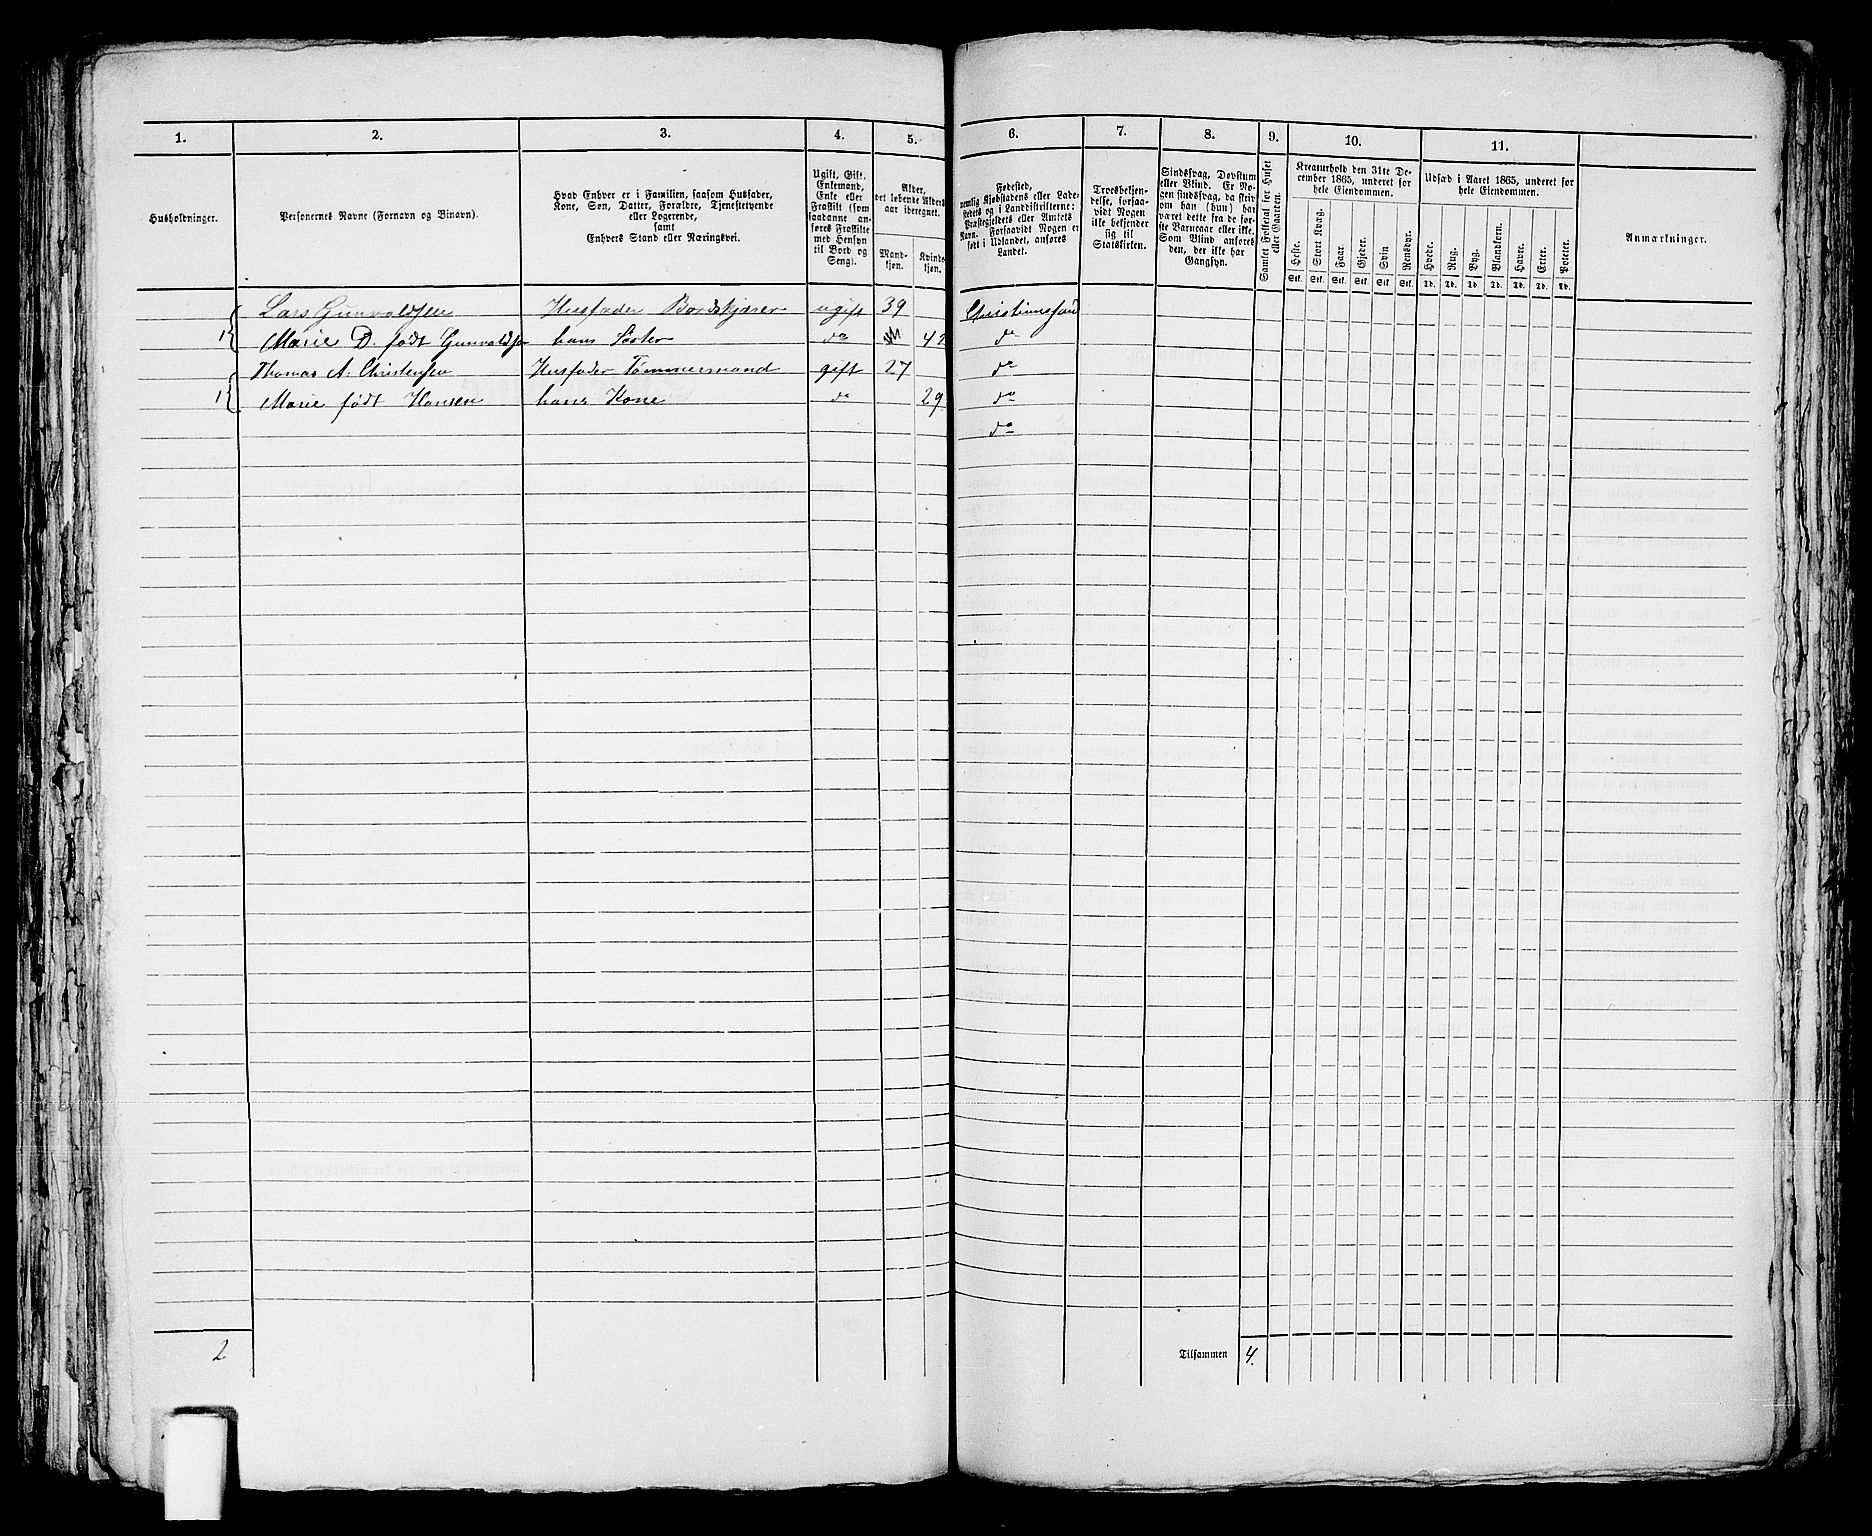 1. 2. 3. 4. 5. 6. 7. 8. 9. 10. 11.
Husholdninger.
Personernes Navne (Fornavn og Binavn).
Hvad Enhver er i Familien, saasom Husfader,
Kone, Søn, Datter, Forældre, Tjenestetyende
eller Logerende,
samt
Enhvers Stand eller Næringsvei.
Ugift, Gift,
Enkemand,
Enke eller
Fraskilt (som
saadanne an-
føres Fraskilte
med Hensyn
til Bord og
Seng).
Alder,
det løbende Alders-
aar iberegnet.
Mand-
kjøn.
Kvinde-
kjøn.
Fødested,
nemlig Kjøbstadens eller Lade-
stedets og i Landdistrikterne:
Præstegjeldets eller Amtets
Navn. Forsaavidt Nogen er
født i Udlandet, anføres
Landet.
Troesbekjen-
delse, forsaa-
vidt Nogen
ikke bekjender
sig til
Statskirken.
Sindssvag, Døvstum
eller Blind. Er No-
gen sindssvag, da skriv
om han (hun) har
været dette fra de før-
ste Barneaar eller ikke.
Som Blind anføres
den, der ikke har
Gangsyn.
Samlet Folketal for Huset
eller Gaarden.
Kreaturhold den 31te De-
cember 1865, underet for
hele Eiendommen.
Heste. Stort Kvæg. Faar. Gjeder. Svin Rensdyr.
Stk. Stk. Stk. Stk. Stk. Stk.
Udsæd i Aaret 1865, underet for
hele Eiendommen.
Hvede. Rug. Byg. Blandkorn. Havre. Erter. Poteter.
Td. Td. Td. Td. Td. Td. Td.
Anmærkninger.
Lars Gunvaldsen Husfader Bordskjærer ugift 39 Christianssand
1 Marie D. født Gunvaldsen hans Søster do 42 do
Thomas A. Christensen Husfader Tømmermand gift 27 do
1 Marie født Hansen hans Kone do 29 do
do
2 Tilsammen 4.